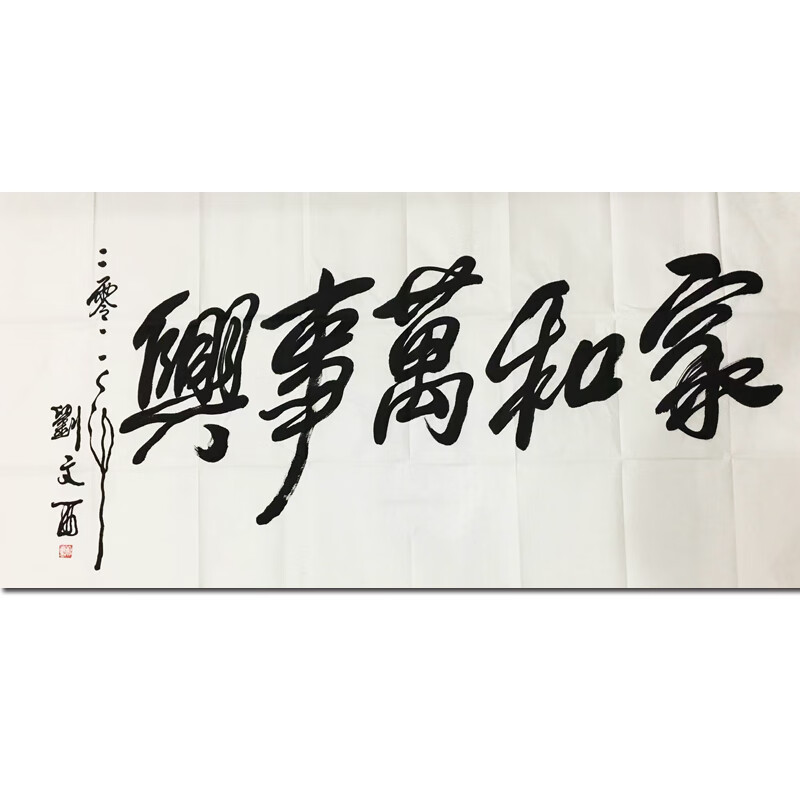 家和萬事興
二零一一年
劉文西